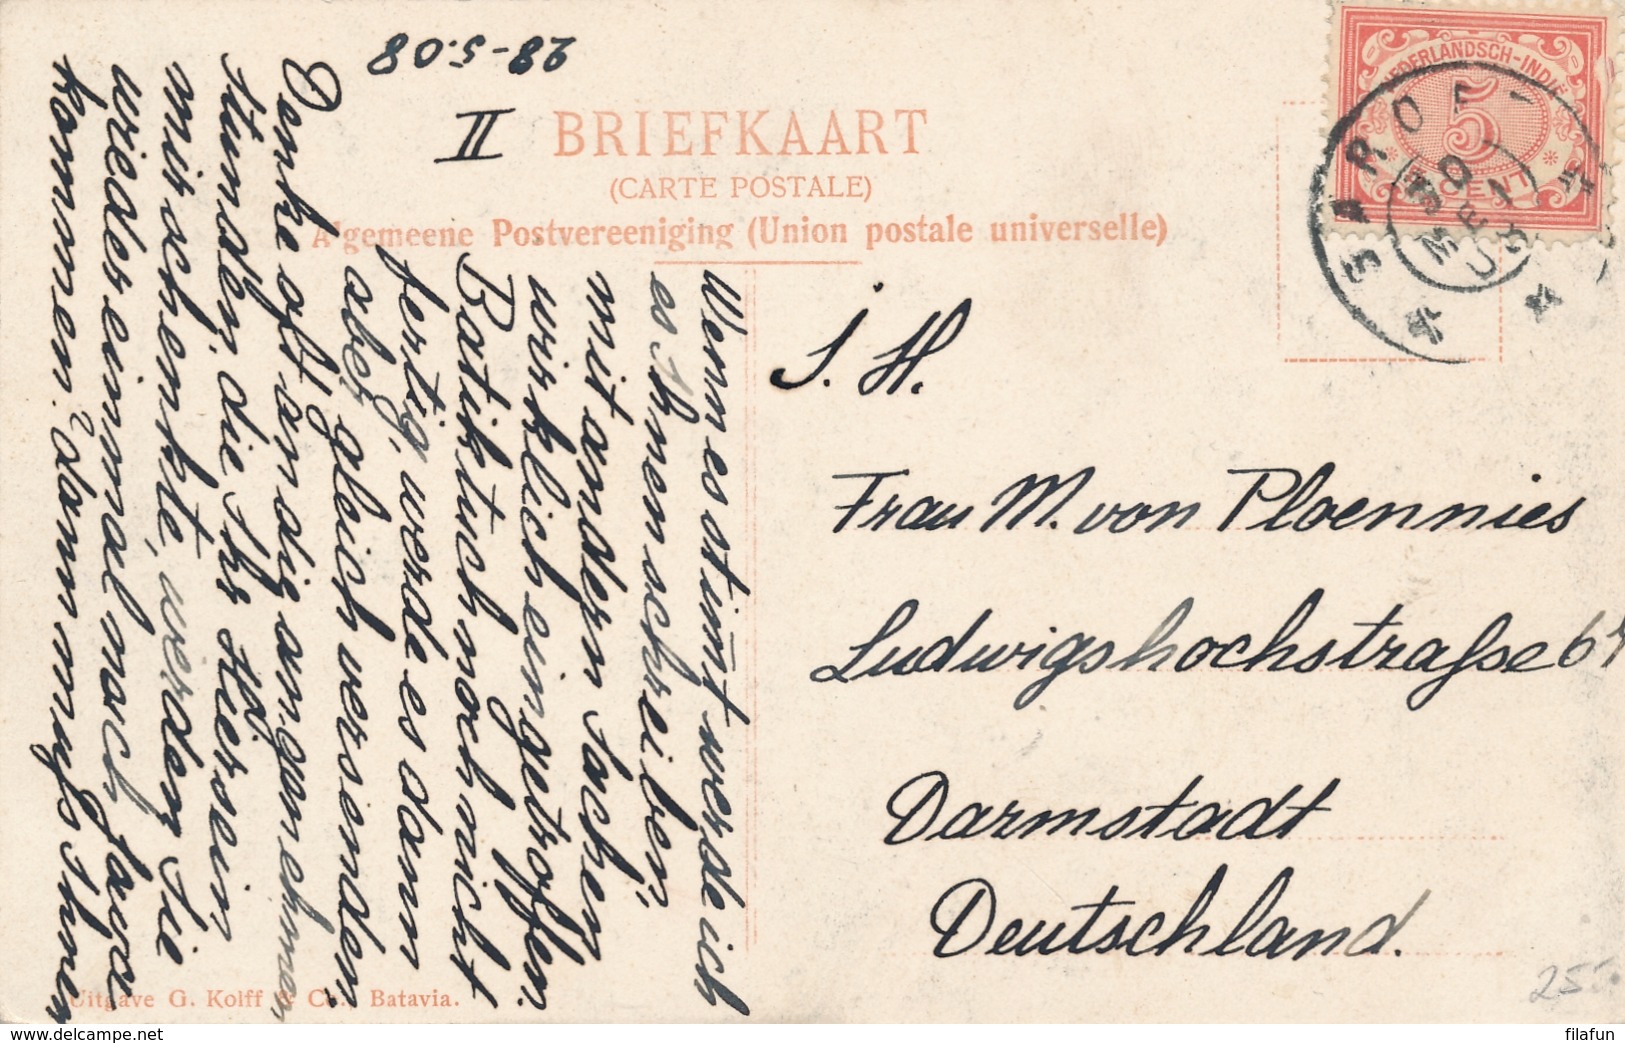 28-5.08
II
BRIEFKAART
(CARTE POSTALE)
Algemeene Postvereeniging (Union postale universelle)
NEDERLANDSCH-INDIE
5
CENT
30
MEI
08
J. H.
Frau M. von Ploennies
Ludwigshochstraſse 61
Darmstadt
Deutschland.
255.
Wenn es stimt werde ich
es Ihnen schreiben;
mit andern Sachen
wirklich eingetroffen.
Batiktuch noch nicht
fertig, werde es dann
aber gleich versenden.
Denke oft an die angenehmen
Stunden, die Ihr Hiersein
mir schenkte, werden Sie
wieder einmal nach Java
kommen? dann muſs Ihnen
Uitgave G. Kolff & Co., Batavia.
filafun